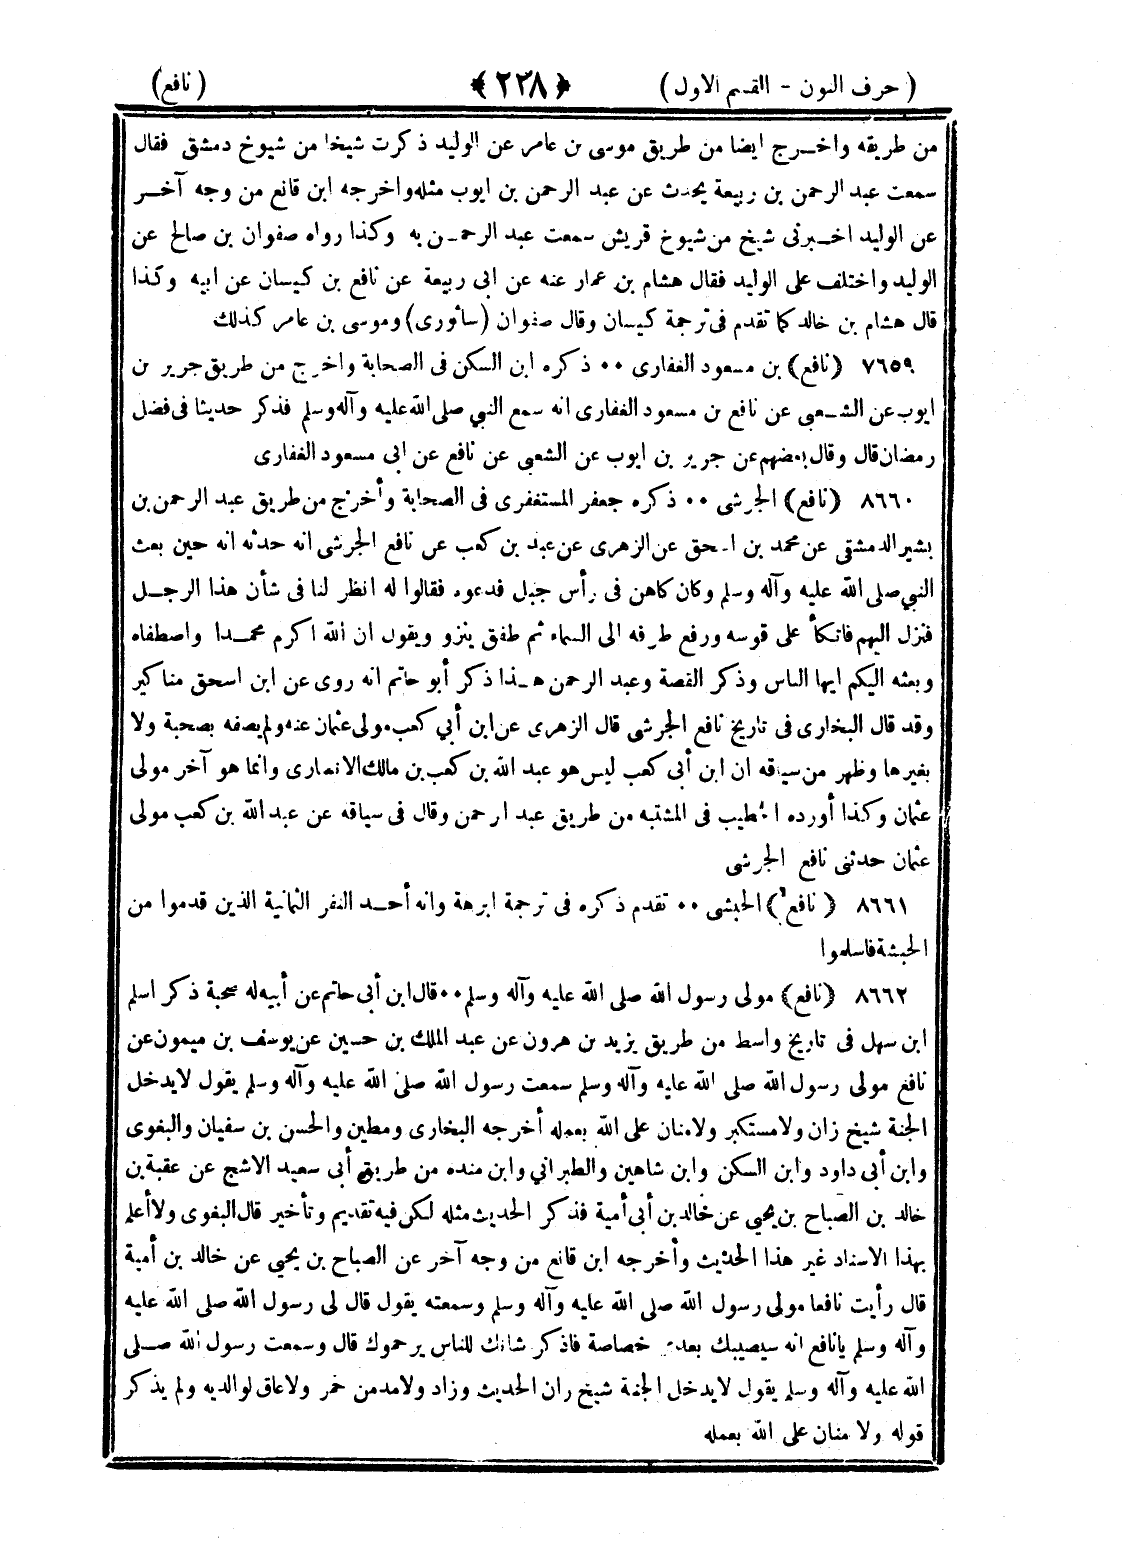 (حرف النون - القسم الاول) ﴿٢٣٨﴾ (نافع)
من طريقه واخرج ايضا من طريق موسى بن عامر عن الوليد ذكرت شيخا من شيوخ دمشق فقال
سمعت عبد الرحمن بن ربيعة يحدث عن عبد الرحمن بن ايوب مثله واخرجه ابن قانع من وجه آخر
عن الوليد اخبرنى شيخ من شيوخ قريش سمعت عبد الرحمن به وكذا رواه صفوان بن صالح عن
الوليد واختلف على الوليد فقال هشام بن عمار عنه عن ابى ربيعة عن نافع بن كيسان عن ابيه وكذا
قال هشام بن خالد كما تقدم فى ترجمة كيسان وقال صفوان (سائورى) وموسى بن عامر كذلك
٧٦٥٩ (نافع) بن مسعود الغفارى ٠٠ ذكره ابن السكن فى الصحابة واخرج من طريق جرير بن
ايوب عن الشعبى عن نافع بن مسعود الغفارى انه سمع النبي صلى الله عليه وآله وسلم فذكر حديثا فى فضل
رمضان قال وقال بعضهم عن جرير بن ايوب عن الشعبى عن نافع عن ابى مسعود الغفارى
٨٦٦٠ (نافع) الجرشى ٠٠ ذكره جعفر المستغفرى فى الصحابة وأخرج من طريق عبد الرحمن بن
بشير الدمشقى عن محمد بن اسحق عن الزهرى عن عبد بن كعب عن نافع الجرشى انه حدثه انه حين بعث
النبي صلى الله عليه وآله وسلم وكان كاهن فى رأس جبل فدعوه فقالوا له انظر لنا فى شأن هذا الرجل
فنزل اليهم فاتكأ على قوسه ورفع طرفه الى السماء ثم طفق ينزو ويقول ان الله اكرم محمدا واصطفاه
وبعثه اليكم ايها الناس وذكر القصة وعبد الرحمن هذا ذكر أبو حاتم انه روى عن ابن اسحق مناكير
وقد قال البخارى فى تاريخ نافع الجرشى قال الزهرى عن ابن أبي كعب مولى عثمان عنه ولم يصفه بصحبة ولا
بغيرها وظهر من سياقه ان ابن أبى كعب ليس هو عبد الله بن كعب بن مالك الانصارى وانما هو آخر مولى
عثمان وكذا أورده الخطيب فى المشتبه من طريق عبد الرحمن وقال فى سياقه عن عبد الله بن كعب مولى
عثمان حدثنى نافع الجرشى
٨٦٦١ (نافع) الحبشى ٠٠ تقدم ذكره فى ترجمة ابرهة وانه أحد النفر الثمانية الذين قدموا من
الحبشة فاسلموا
٨٦٦٢ (نافع) مولى رسول الله صلى الله عليه وآله وسلم ٠٠ قال ابن أبى حاتم عن أبيه له صحبة ذكر اسلم
ابن سهل فى تاريخ واسط من طريق يزيد بن هرون عن عبد الملك بن حسين عن يوسف بن ميمون عن
نافع مولى رسول الله صلى الله عليه وآله وسلم سمعت رسول الله صلى الله عليه وآله وسلم يقول لايدخل
الجنة شيخ زان ولا مستكبر ولا منان على الله بعمله أخرجه البخارى ومطين والحسن بن سفيان والبغوى
وابن أبى داود وابن السكن وابن شاهين والطبراني وابن منده من طريق أبى سعيد الاشج عن عقبة بن
خالد بن الصباح بن يحيى عن خالد بن أبى أمية فذكر الحديث مثله لكن فيه تقديم وتأخير قال البغوى ولا أعلم
بهذا الاسناد غير هذا الحديث وأخرجه ابن قانع من وجه آخر عن الصباح بن يحيى عن خالد بن أمية
قال رأيت نافعا مولى رسول الله صلى الله عليه وآله وسلم وسمعته يقول قال لى رسول الله صلى الله عليه
وآله وسلم يا نافع انه سيصيبك بعدى خصاصة فاذكر شانك للناس يرحموك قال وسمعت رسول الله صلى
الله عليه وآله وسلم يقول لايدخل الجنة شيخ زان الحديث وزاد ولا مدمن خمر ولا عاق لوالديه ولم يذكر
قوله ولا منان على الله بعمله